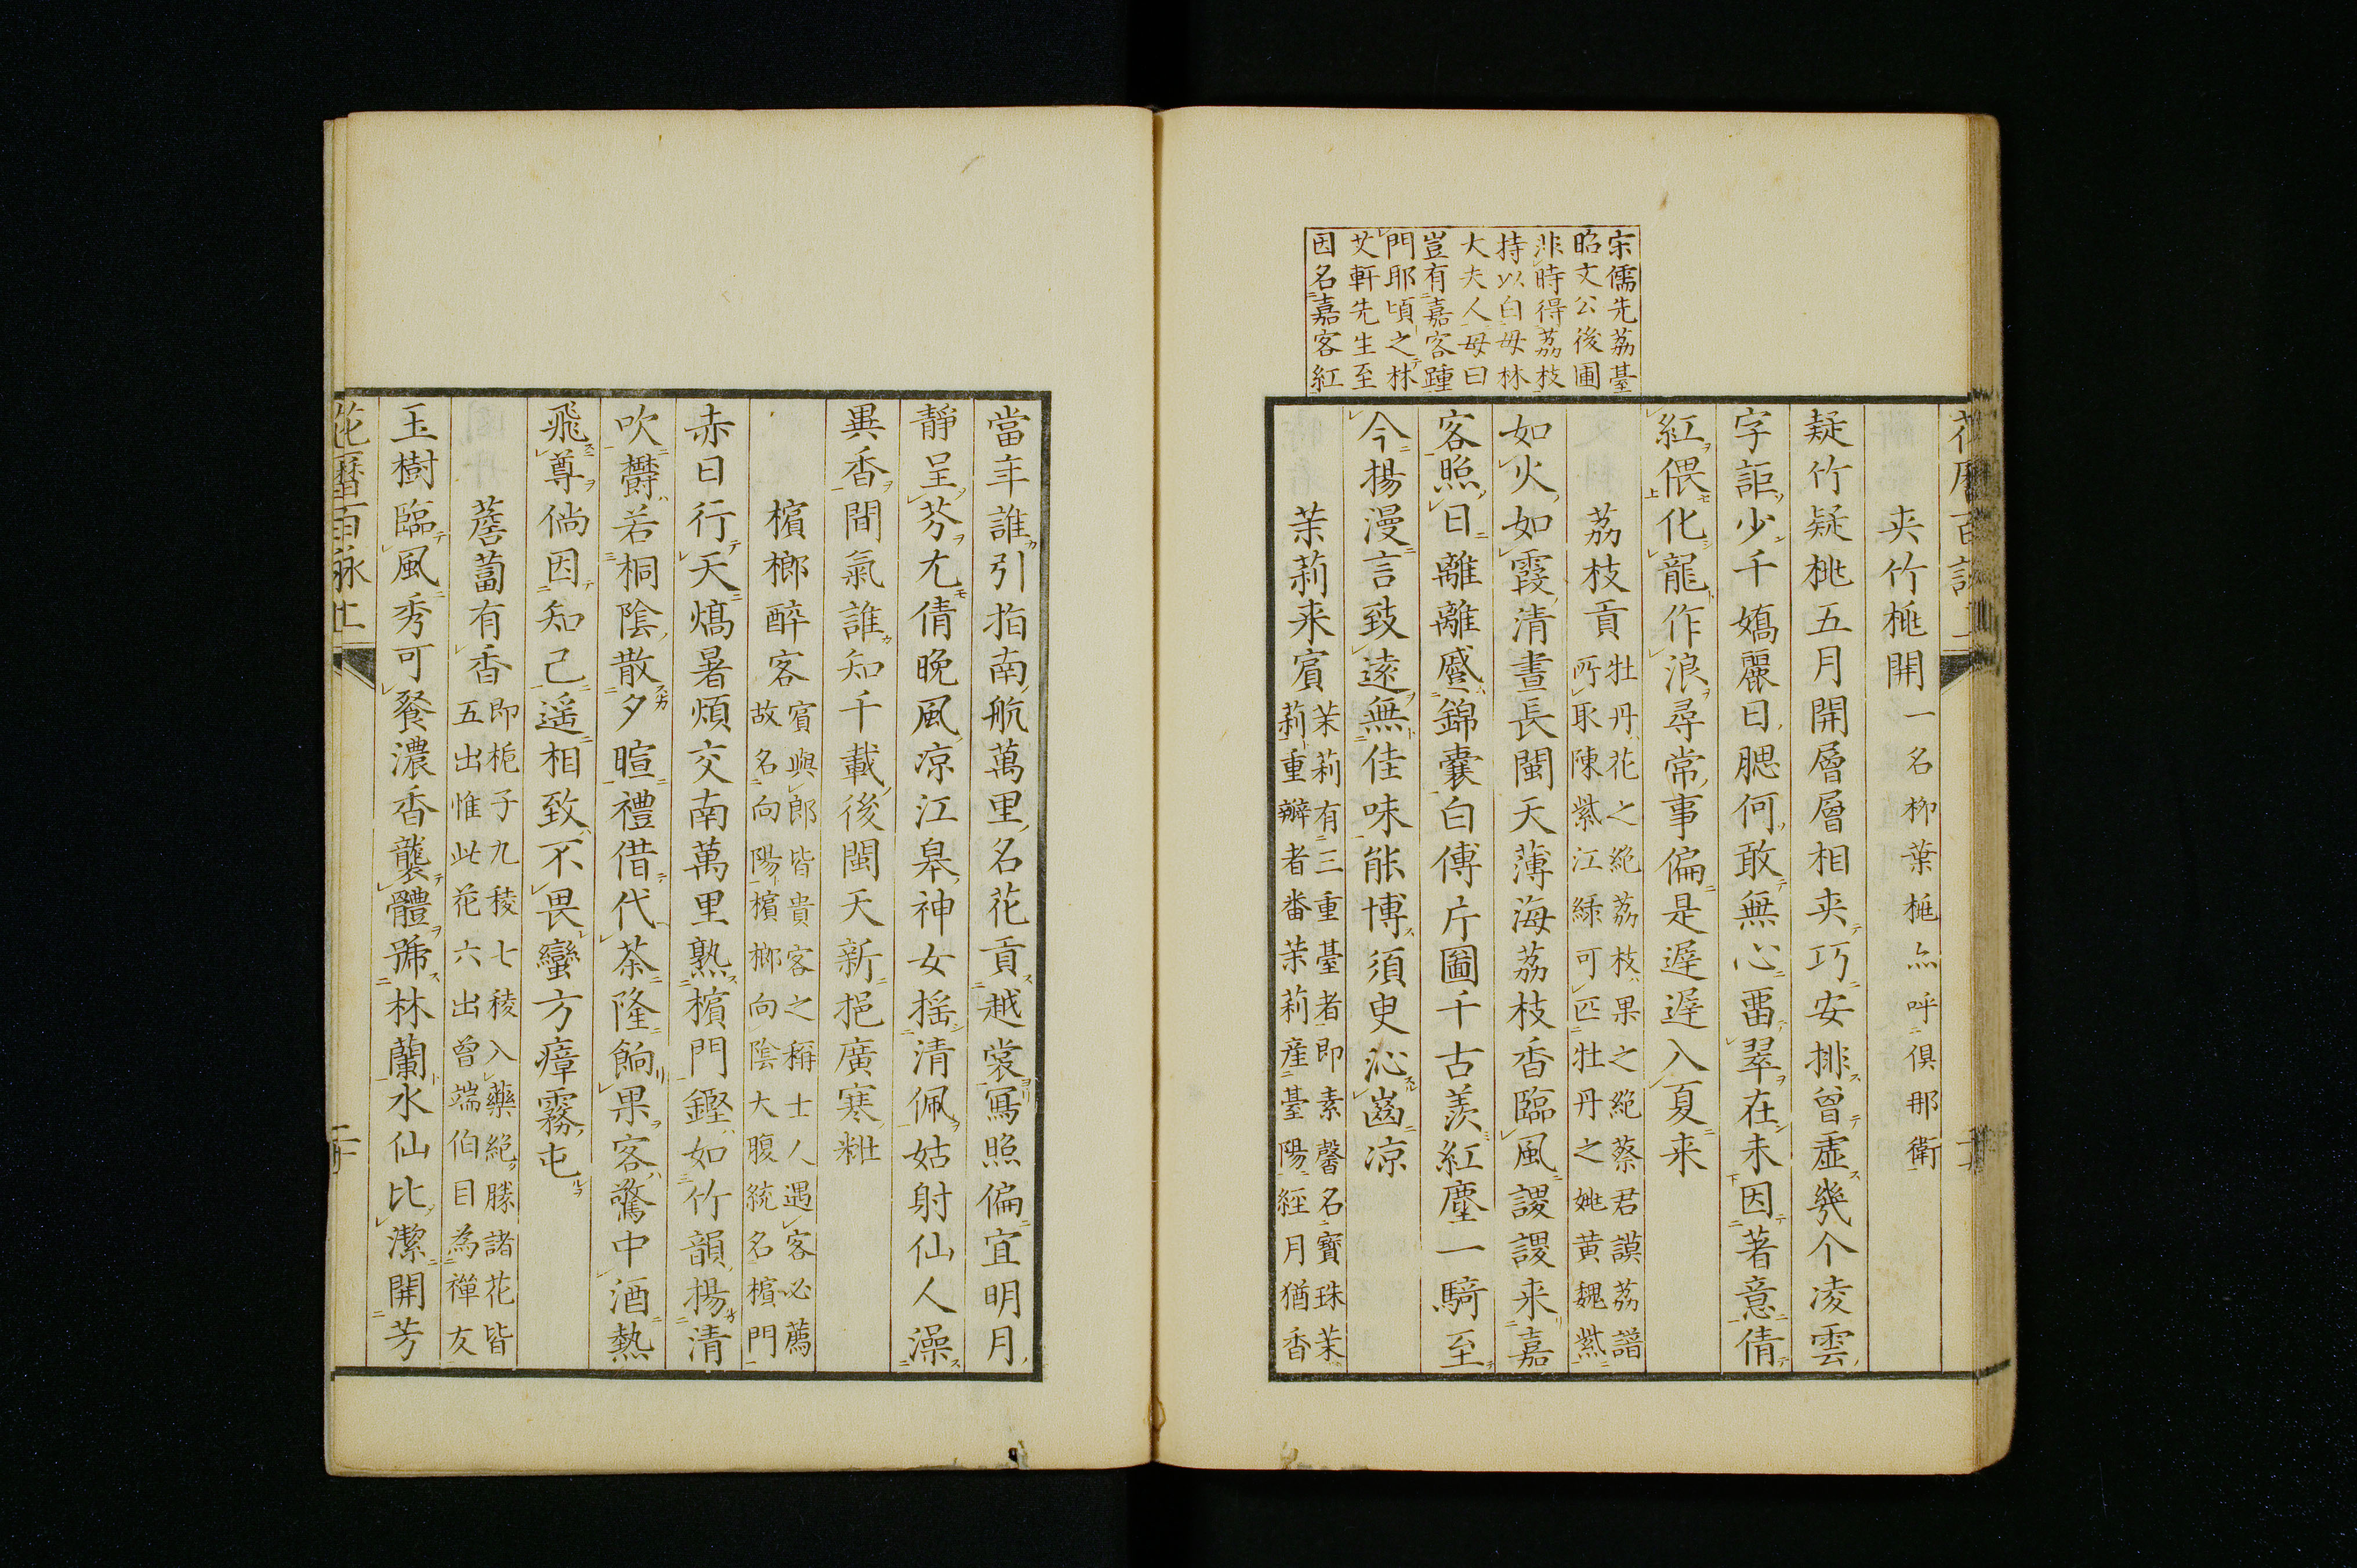 宋儒先荔臺
昭文公後圃
非時得荔枝
持以白母林
大夫人母曰
豈有嘉客踵
門耶頃之林
艾軒先生至
因名嘉客紅
夾竹桃開一名柳葉桃亦呼俱那衛
疑竹疑桃五月開層層相夾巧安排曾虛幾个凌雲
字詎少千嬌麗日腮何敢無心畱翠在未因著意倩
紅偎化龍作浪尋常事偏是遲遲入夏来
荔枝貢牡丹花之絶荔枝果之絶蔡君謨荔譜
所取陳紫江緑可匹牡丹之姚黄魏紫
如火如霞清晝長閩天薄海荔枝香臨風謖謖来嘉
客照日離離蹙錦囊白傅片圖千古羨紅塵一騎至
今揚漫言致遠無佳味能博須臾沁齒凉
茉莉来賔茉莉有三重臺者即素馨名寳珠茉
莉重瓣者番茉莉産臺陽經月猶香
當年誰引指南航萬里名花貢越裳寫照偏宜明月
靜呈芬尤倩晩風凉江皋神女揺清佩姑射仙人澡
異香間氣誰知千載後閩天新挹廣寒粧
檳榔醉客賔與郎皆貴客之稱士人遇客必薦
故名向陽檳榔向陰大腹統名檳門
赤日行天熇暑煩交南萬里熟檳門鏗如竹韻揚清
吹欝若桐陰散夕暄禮借代茶隆餉果客驚中酒熱
飛尊倘因知己遥相致不畏蠻方瘴霧屯
薝蔔有香即梔子九稜七稜入藥絶勝諸花皆
五出惟此花六出曾端伯目為禪友
玉樹臨風秀可餐濃香襲體號林蘭水仙比潔開芳
花暦百詠上